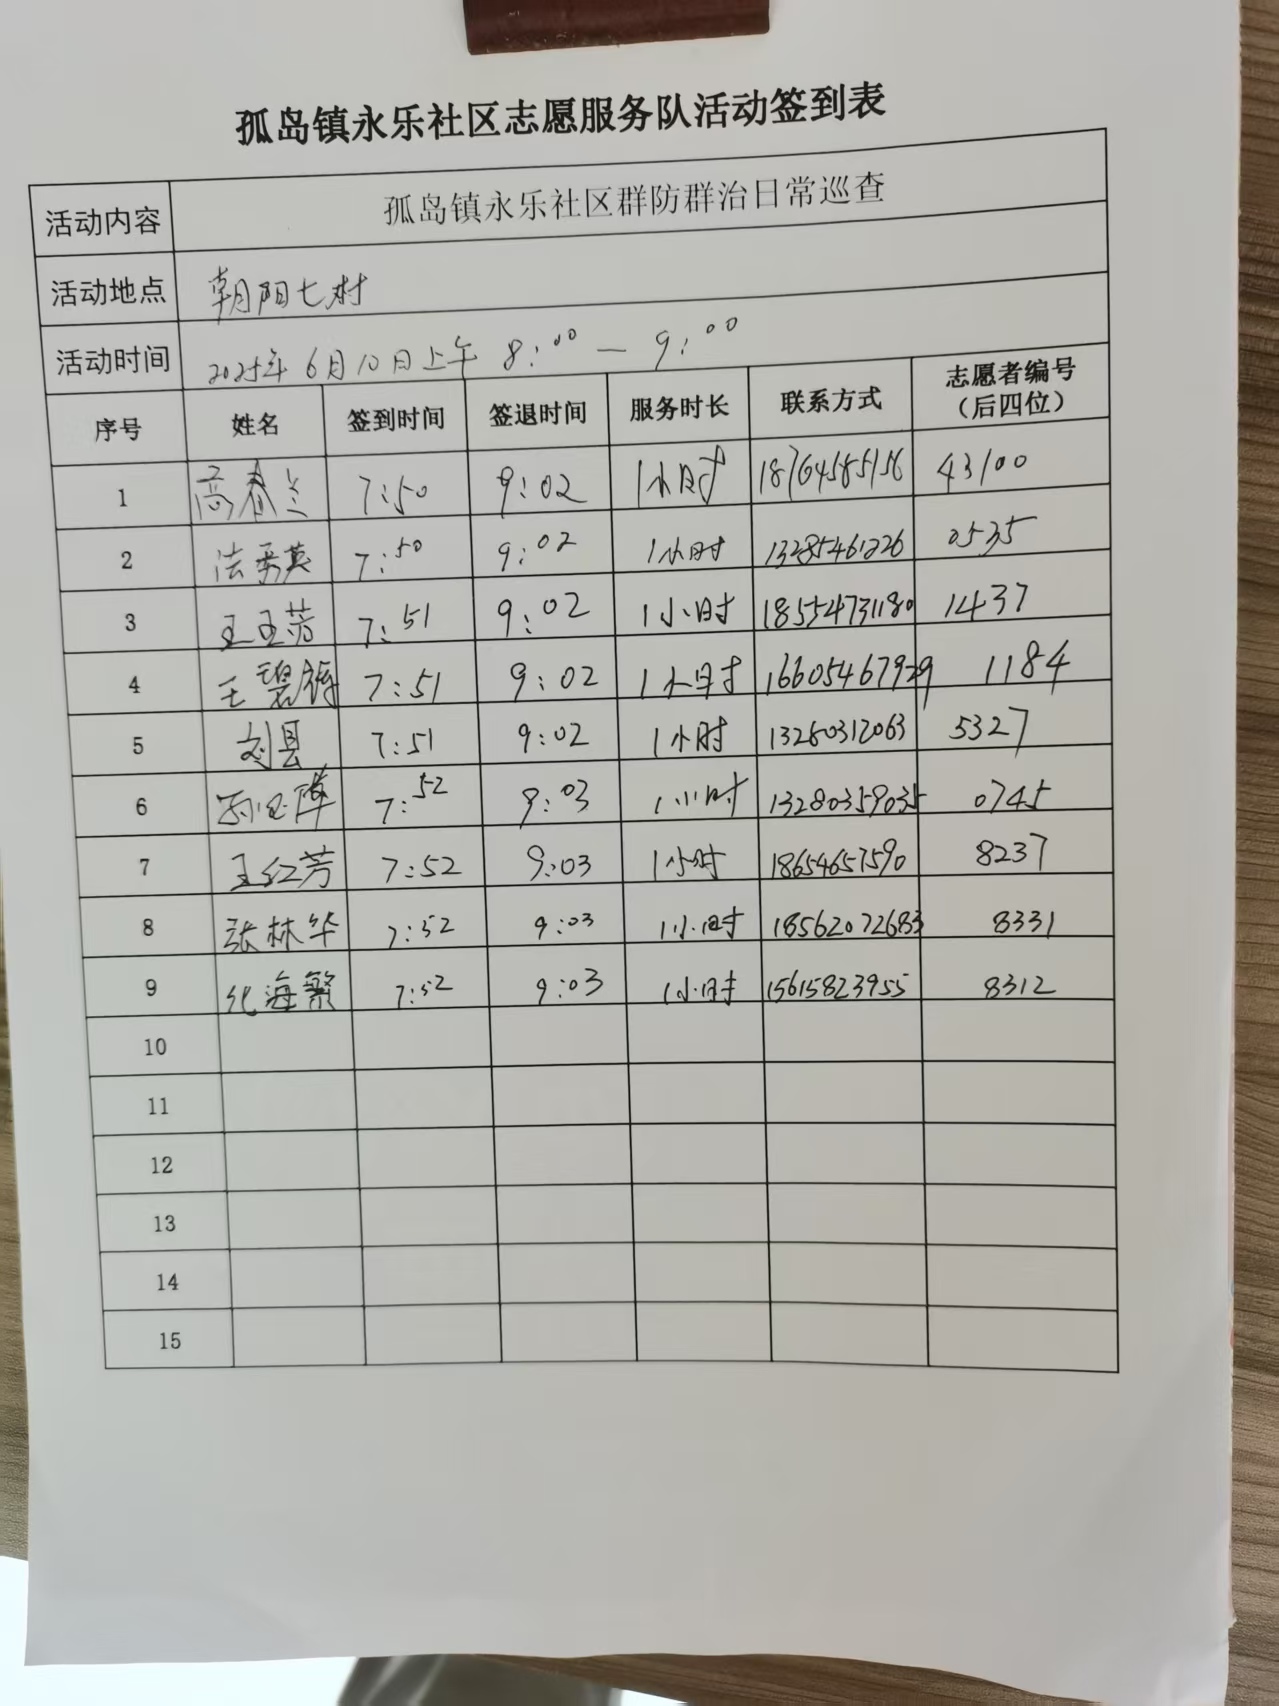 孤岛镇永乐社区志愿服务队活动签到表
活动内容 孤岛镇永乐社区群防群治日常巡查
活动地点 朝阳七村
活动时间 2025年6月10日上午 8:00 — 9:00
序号 姓名 签到时间 签退时间 服务时长 联系方式 志愿者编号（后四位）
1 高春兰 7:50 9:02 1小时 18764585156 43100
2 法秀英 7:50 9:02 1小时 13285461226 0535
3 王玉芳 7:51 9:02 1小时 18554731180 1437
4 王碧 7:51 9:02 1小时 16605467929 1184
5 刘昙 7:51 9:02 1小时 13280312063 5327
6 7:52 9:03 1小时 13280359035 0745
7 王红芳 7:52 9:03 1小时 18654657590 8237
8 张林华 7:52 9:03 1小时 18562072683 8331
9 化海繁 7:52 9:03 1小时 15615823955 8312
10
11
12
13
14
15